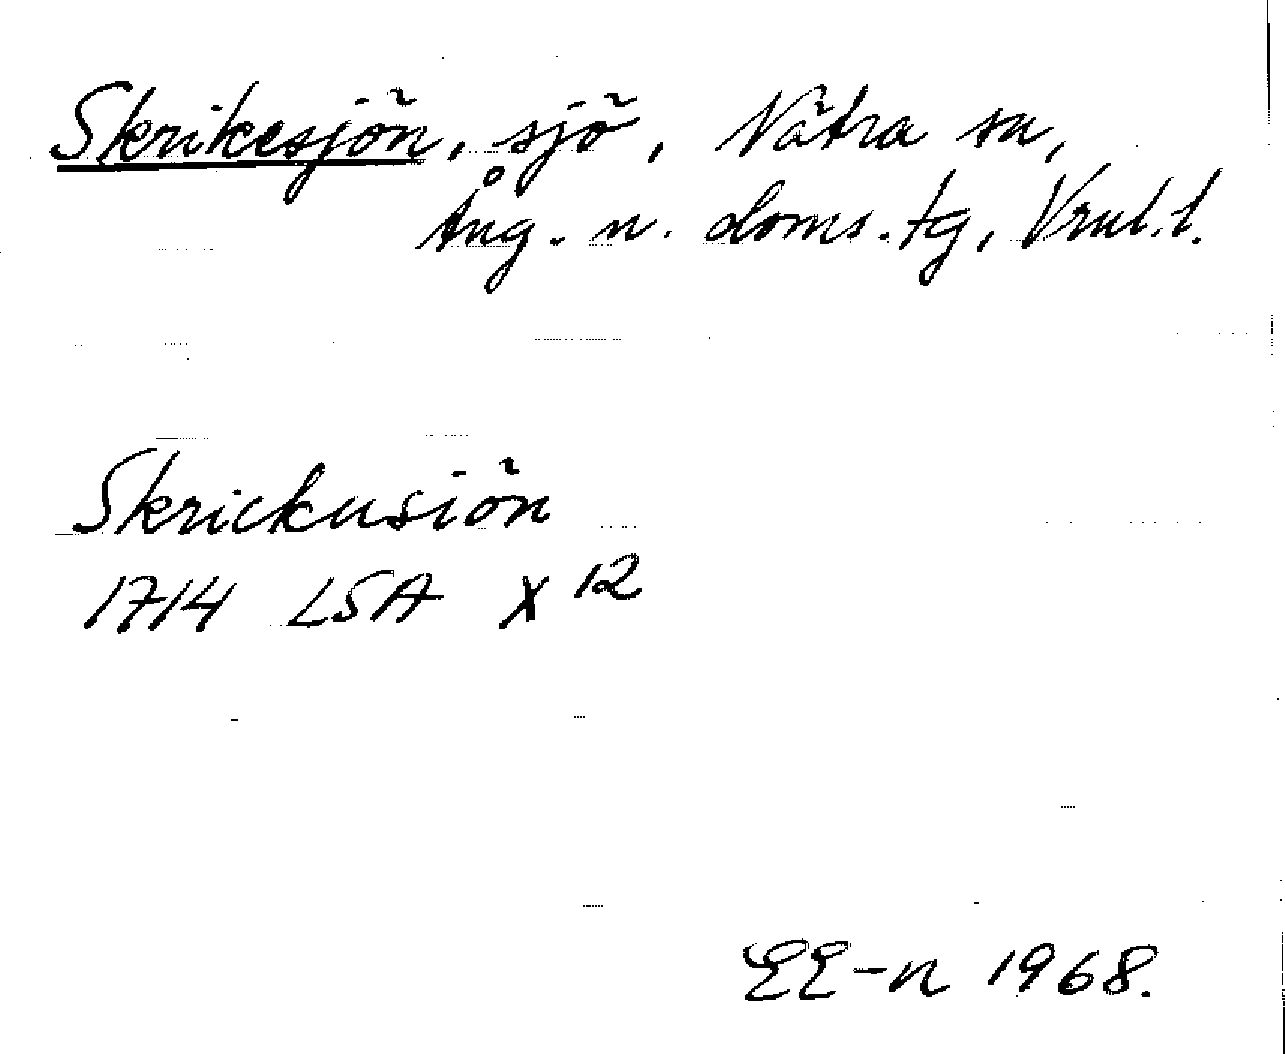 Skrikesjön, sjö, Nätra sn,
Ång. n. doms.tg, Vrnl.l.
Skrickusiön
1714 LSA X 12
EE-n 1968.